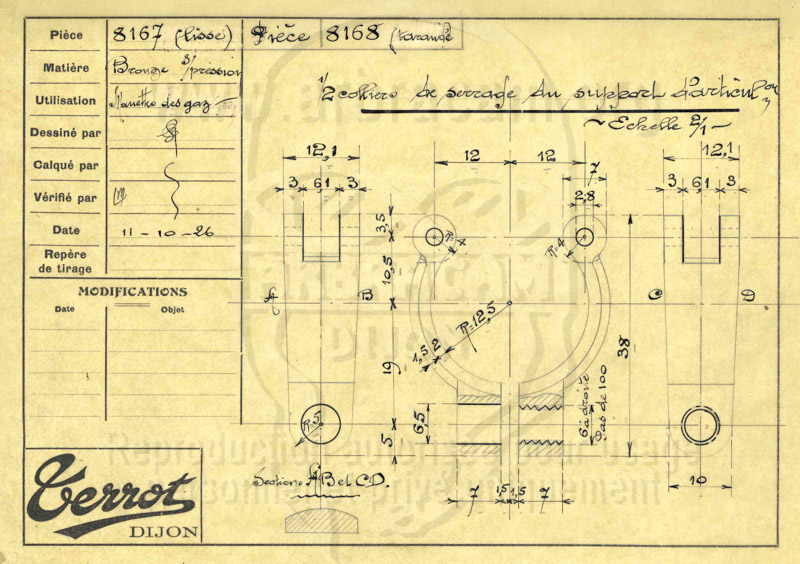 Pièce 8167 (lisse) Pièce 8168 (taraudé
Matière Bronze s/pression
Utilisation Manette des gaz
Dessiné par
Calqué par
Vérifié par
Date 11-10-26
Repère
de tirage
MODIFICATIONS
Date Objet
1/2 colliers de serrage du support d'articulon
~ Echelle 2/1 ~
12,1
3 6,1 3
12 12
7
2,8
12,1
3 6,1 3
3,5
10,5
19
5
R=4
R=4
A B
C D
R=12,5
1,5 2
38
R.5
6,5
6 à droite
pas de 100
Sections AB et CD.
7 1,5 1,5 7
10
Terrot
DIJON
DIJON
Reproduction autorisée pour usage
personnel et privé uniquement